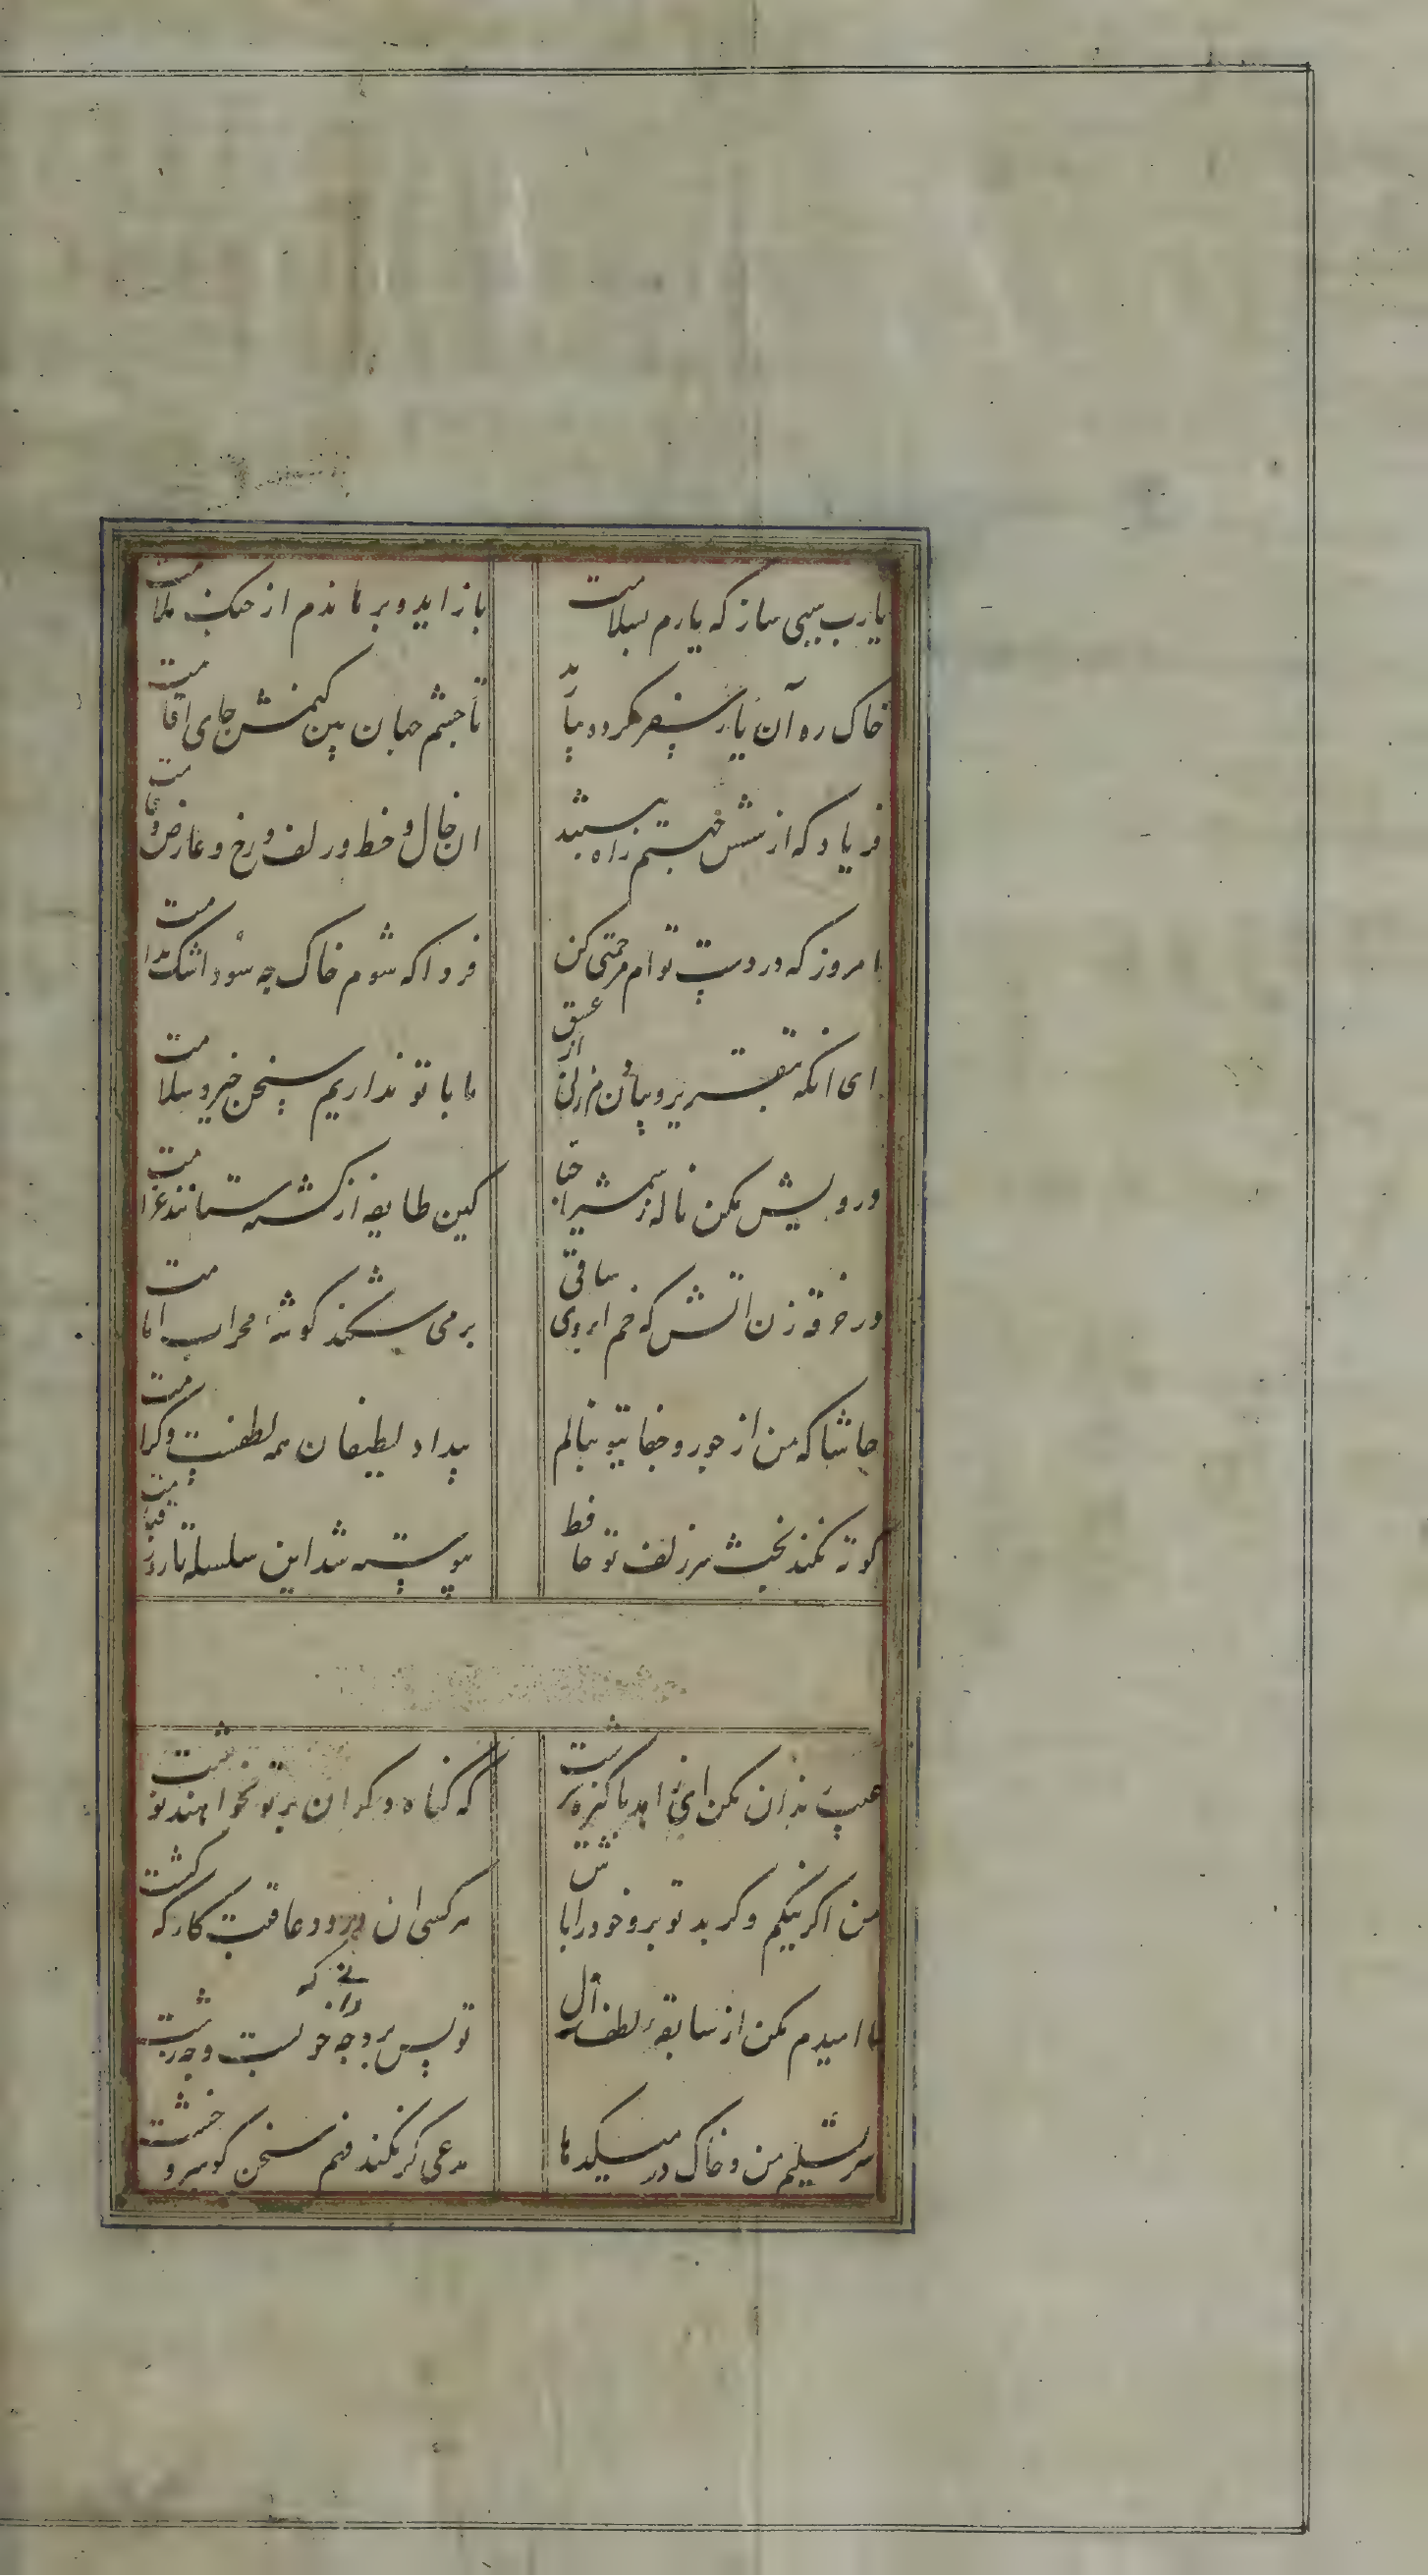 یارب سببی ساز که یارم بسلامت
باز اید و برهاندم از چنک ملامت
خاک ره آن یار سفر کرده بیارید
تا چشم جهان بین کنمش جای اقامت
فریاد که از شش جهتم راه ببستند
ان خال و خط و زلف و رخ و عارض و قامت
امروز که در دست توام مرحمتی کن
فردا که شوم خاک چه سود اشک ندامت
ای انکه بتقریر و بیان دم زنی از عشق
ما با تو نداریم سخن خیر و سلامت
درویش مکن ناله ز شمشیر احبا
کین طایفه از کشته ستانند غرامت
در خرقه زن اتش که خم ابروی ساقی
بر می شکند کوشهٔ محراب امامت
حاشا که من از جور و جفای تو بنالم
بیداد لطیفان همه لطفست و کرامت
کوته نکند بحث سر زلف تو حافظ
پیوسته شد این سلسله تا روز قیامت
عیب رندان مکن ای زاهد پاکیزه سرشت
که کناه دکران بر تو نخواهند نوشت
من اکر نیکم و کر بد تو برو خود را باش
هر کسی ان درود عاقبت کار که کشت
نا امیدم مکن از سابقهٔ لطف ازل
تو پس پرده چه دانی که خوبست و چه زشت
سر تسلیم من و خاک در میکدها
مدعی کر نکند فهم سخن کو سر و خشت